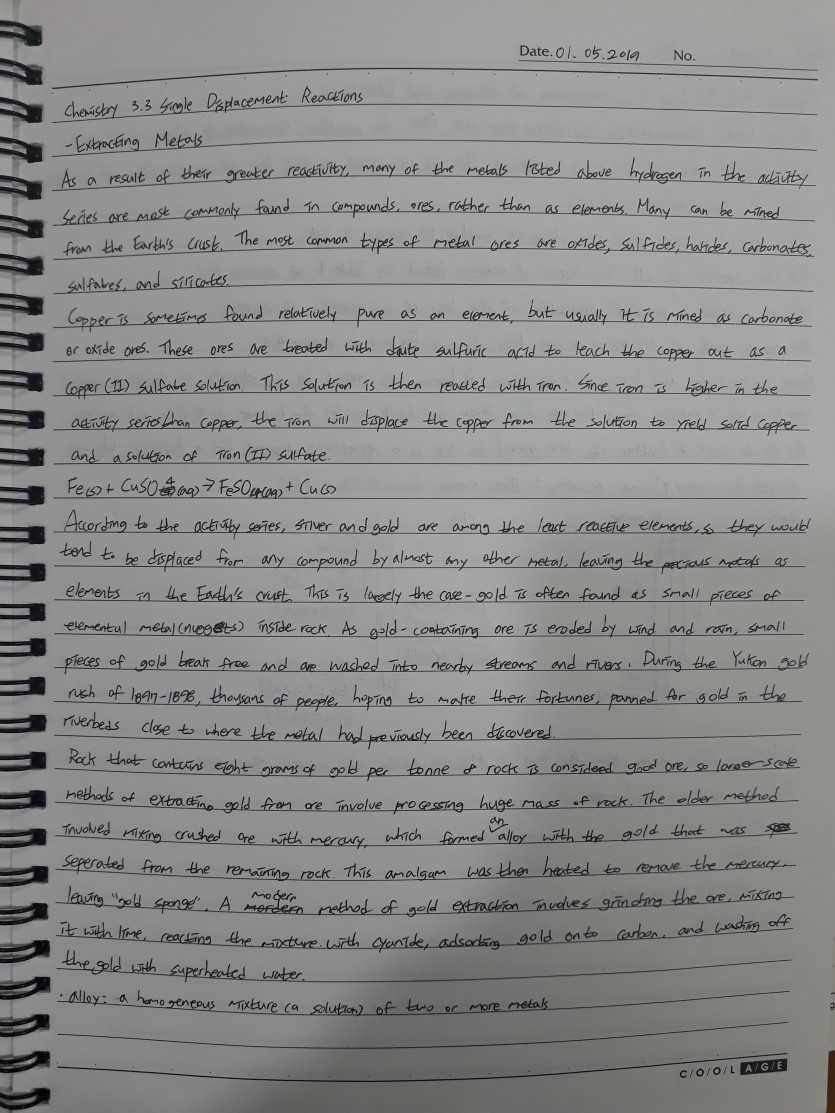 Date. 01. 05. 2019 No.
Chemistry 3.3 Single Displacement Reactions
- Extracting Metals
As a result of their greater reactivity, many of the metals listed above hydrogen in the activity
series are most commonly found in compounds, ores, rather than as elements. Many can be mined
from the Earth's crust. The most common types of metal ores are oxides, sulfides, halides, carbonates,
sulfates, and silicates.
Copper is sometimes found relatively pure as an element, but usually it is mined as carbonate
or oxide ores. These ores are treated with dilute sulfuric acid to leach the copper out as a
Copper (II) sulfate solution. This solution is then reacted with iron. Since iron is higher in the
activity series than copper, the iron will displace the copper from the solution to yield solid copper
and a solution of iron (II) sulfate.
Fe(s) + CuSO4(aq) → FeSO4(aq) + Cu(s)
According to the activity series, silver and gold are among the least reactive elements, so they would
tend to be displaced from any compound by almost any other metal, leaving the precious metals as
elements in the Earth's crust. This is largely the case - gold is often found as small pieces of
elemental metal (nuggets) inside rock. As gold-containing ore is eroded by wind and rain, small
pieces of gold break free and are washed into nearby streams and rivers. During the Yukon gold
rush of 1897-1898, thousans of people, hoping to make their fortunes, panned for gold in the
riverbeds close to where the metal had previously been discovered.
Rock that contains eight grams of gold per tonne of rock is considered good ore, so larger-scale
methods of extracting gold from ore involve processing huge mass of rock. The older method
involved mixing crushed ore with mercury, which formed an alloy with the gold that was
seperated from the remaining rock. This amalgam was then heated to remove the mercury,
leaving "gold sponge". A modern method of gold extraction involves grinding the ore, mixing
it with lime, reacting the mixture with cyanide, adsorbing gold onto carbon, and washing off
the gold with superheated water.
· alloy: a homogeneous mixture (a solution) of two or more metals
C/O/O/L A/G/E